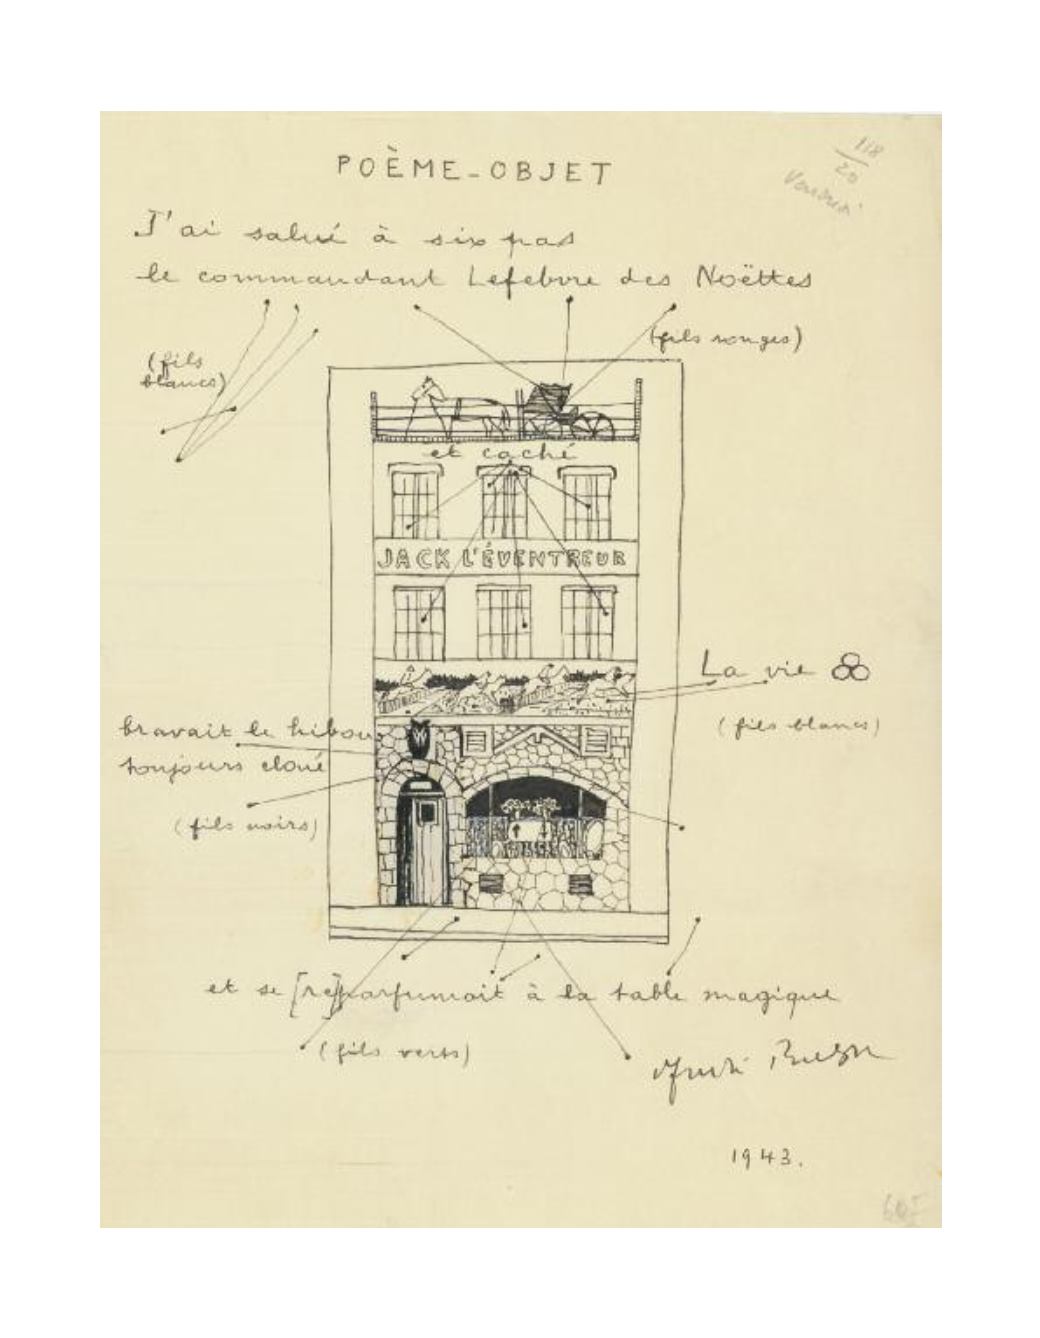 POÈME-OBJET
118
20
Vendredi
J'ai salué à six pas
le commandant Lefebvre des Noëttes
(fils rouges)
(fils
blancs)
et caché
JACK L'ÉVENTREUR
La vie
(fils blancs)
bravait le hibou
toujours cloué
(fils noirs)
et se [re]parfumait à la table magique
(fils verts)
André Breton
1943.